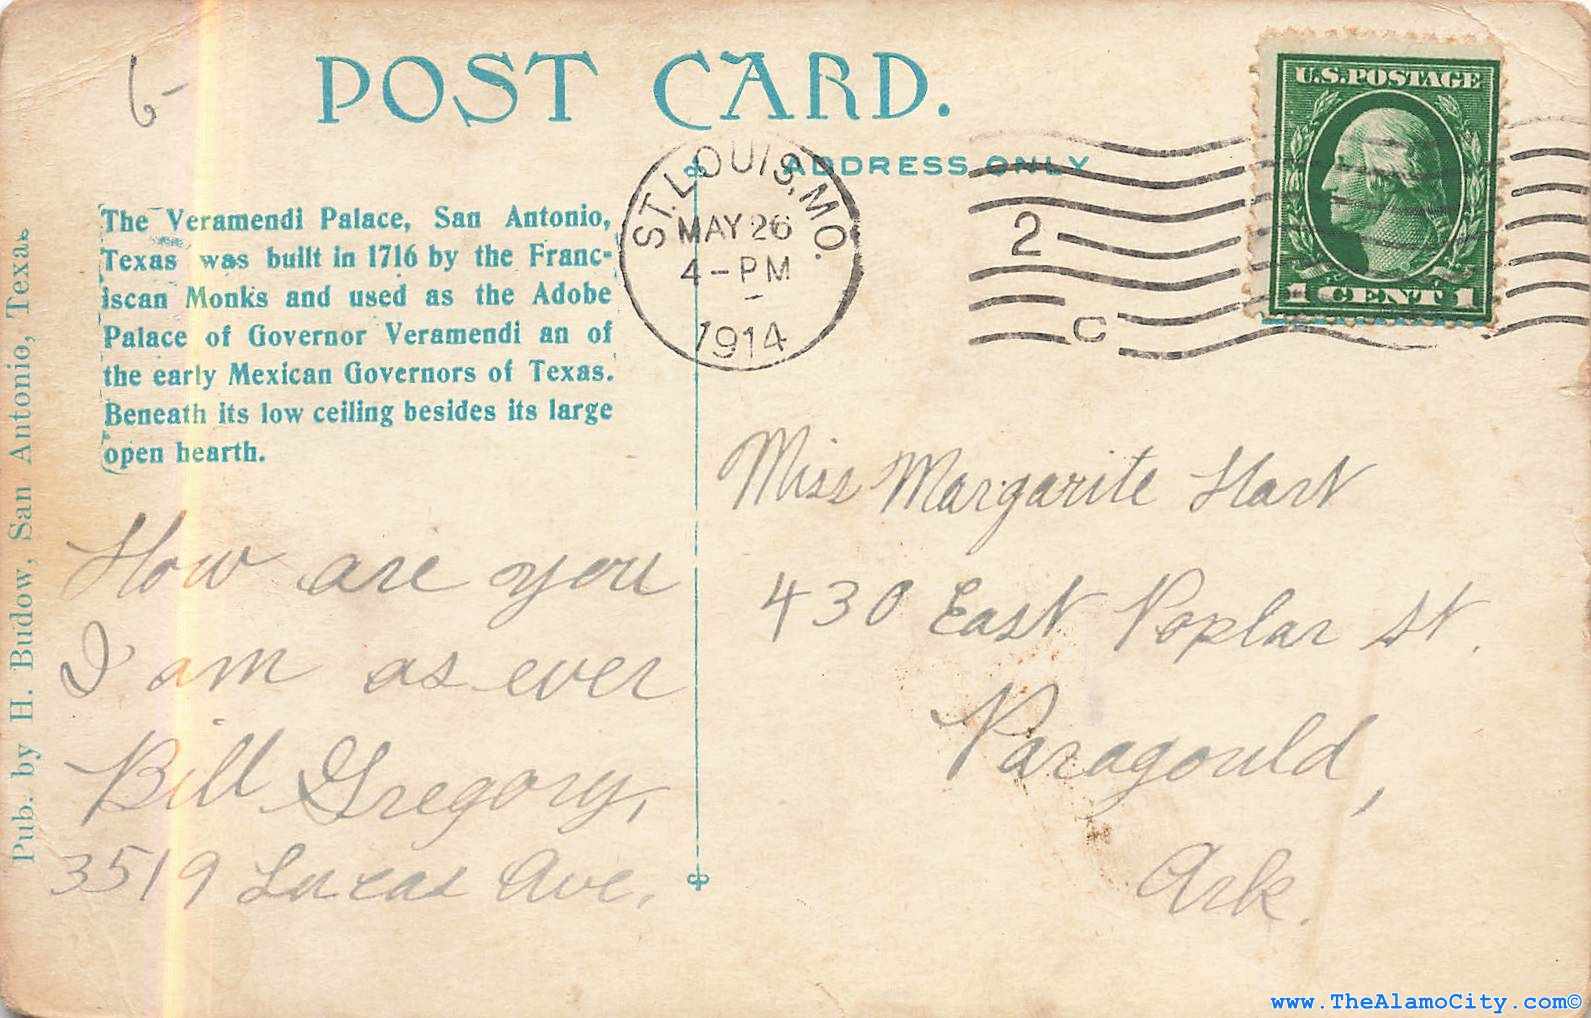 6-
POST CARD.
ADDRESS ONLY
U.S. POSTAGE
1 CENT 1
ST. LOUIS, MO.
MAY 26
4-PM
1914
2
C
The Veramendi Palace, San Antonio,
Texas was built in 1716 by the Franc-
iscan Monks and used as the Adobe
Palace of Governor Veramendi an of
the early Mexican Governors of Texas.
Beneath its low ceiling besides its large
open hearth.
Pub. by H. Budow, San Antonio, Texas
How are you
I am as ever
Bill Gregory,
3519 Lucas Ave.
Miss Margarite Hart
430 East Poplar St.
Paragould,
Ark.
www.TheAlamoCity.com©